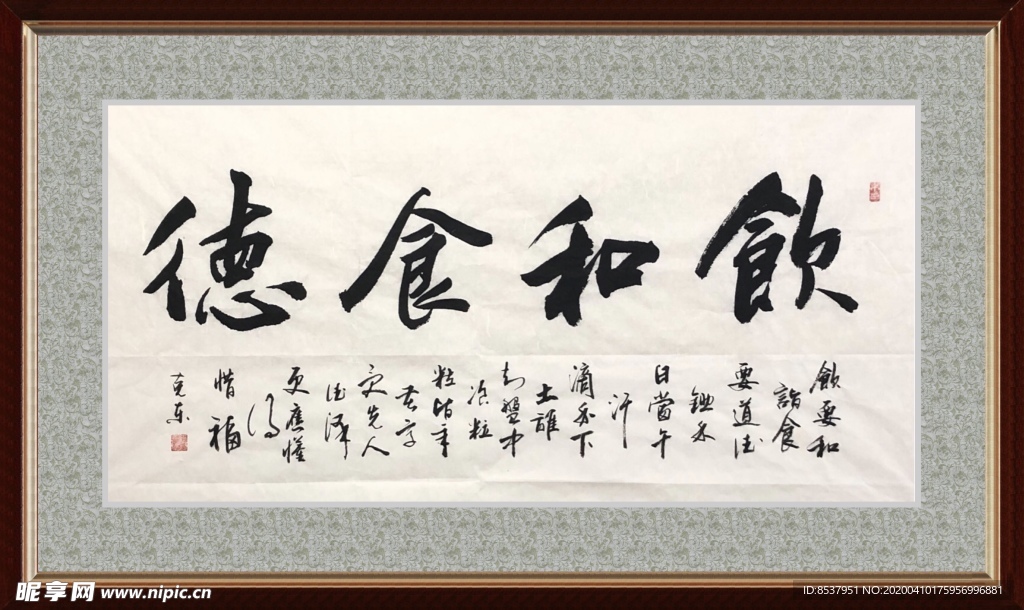 飲和食德
飲要和
諧食
要道德
鋤禾
日當午
汗
滴禾下
土誰
知盤中
飡粒
粒皆辛
苦享
受先人
德澤
更應懂
得
惜福
克东
昵享网 www.nipic.cn
ID:8537951 NO:20200410175956996881